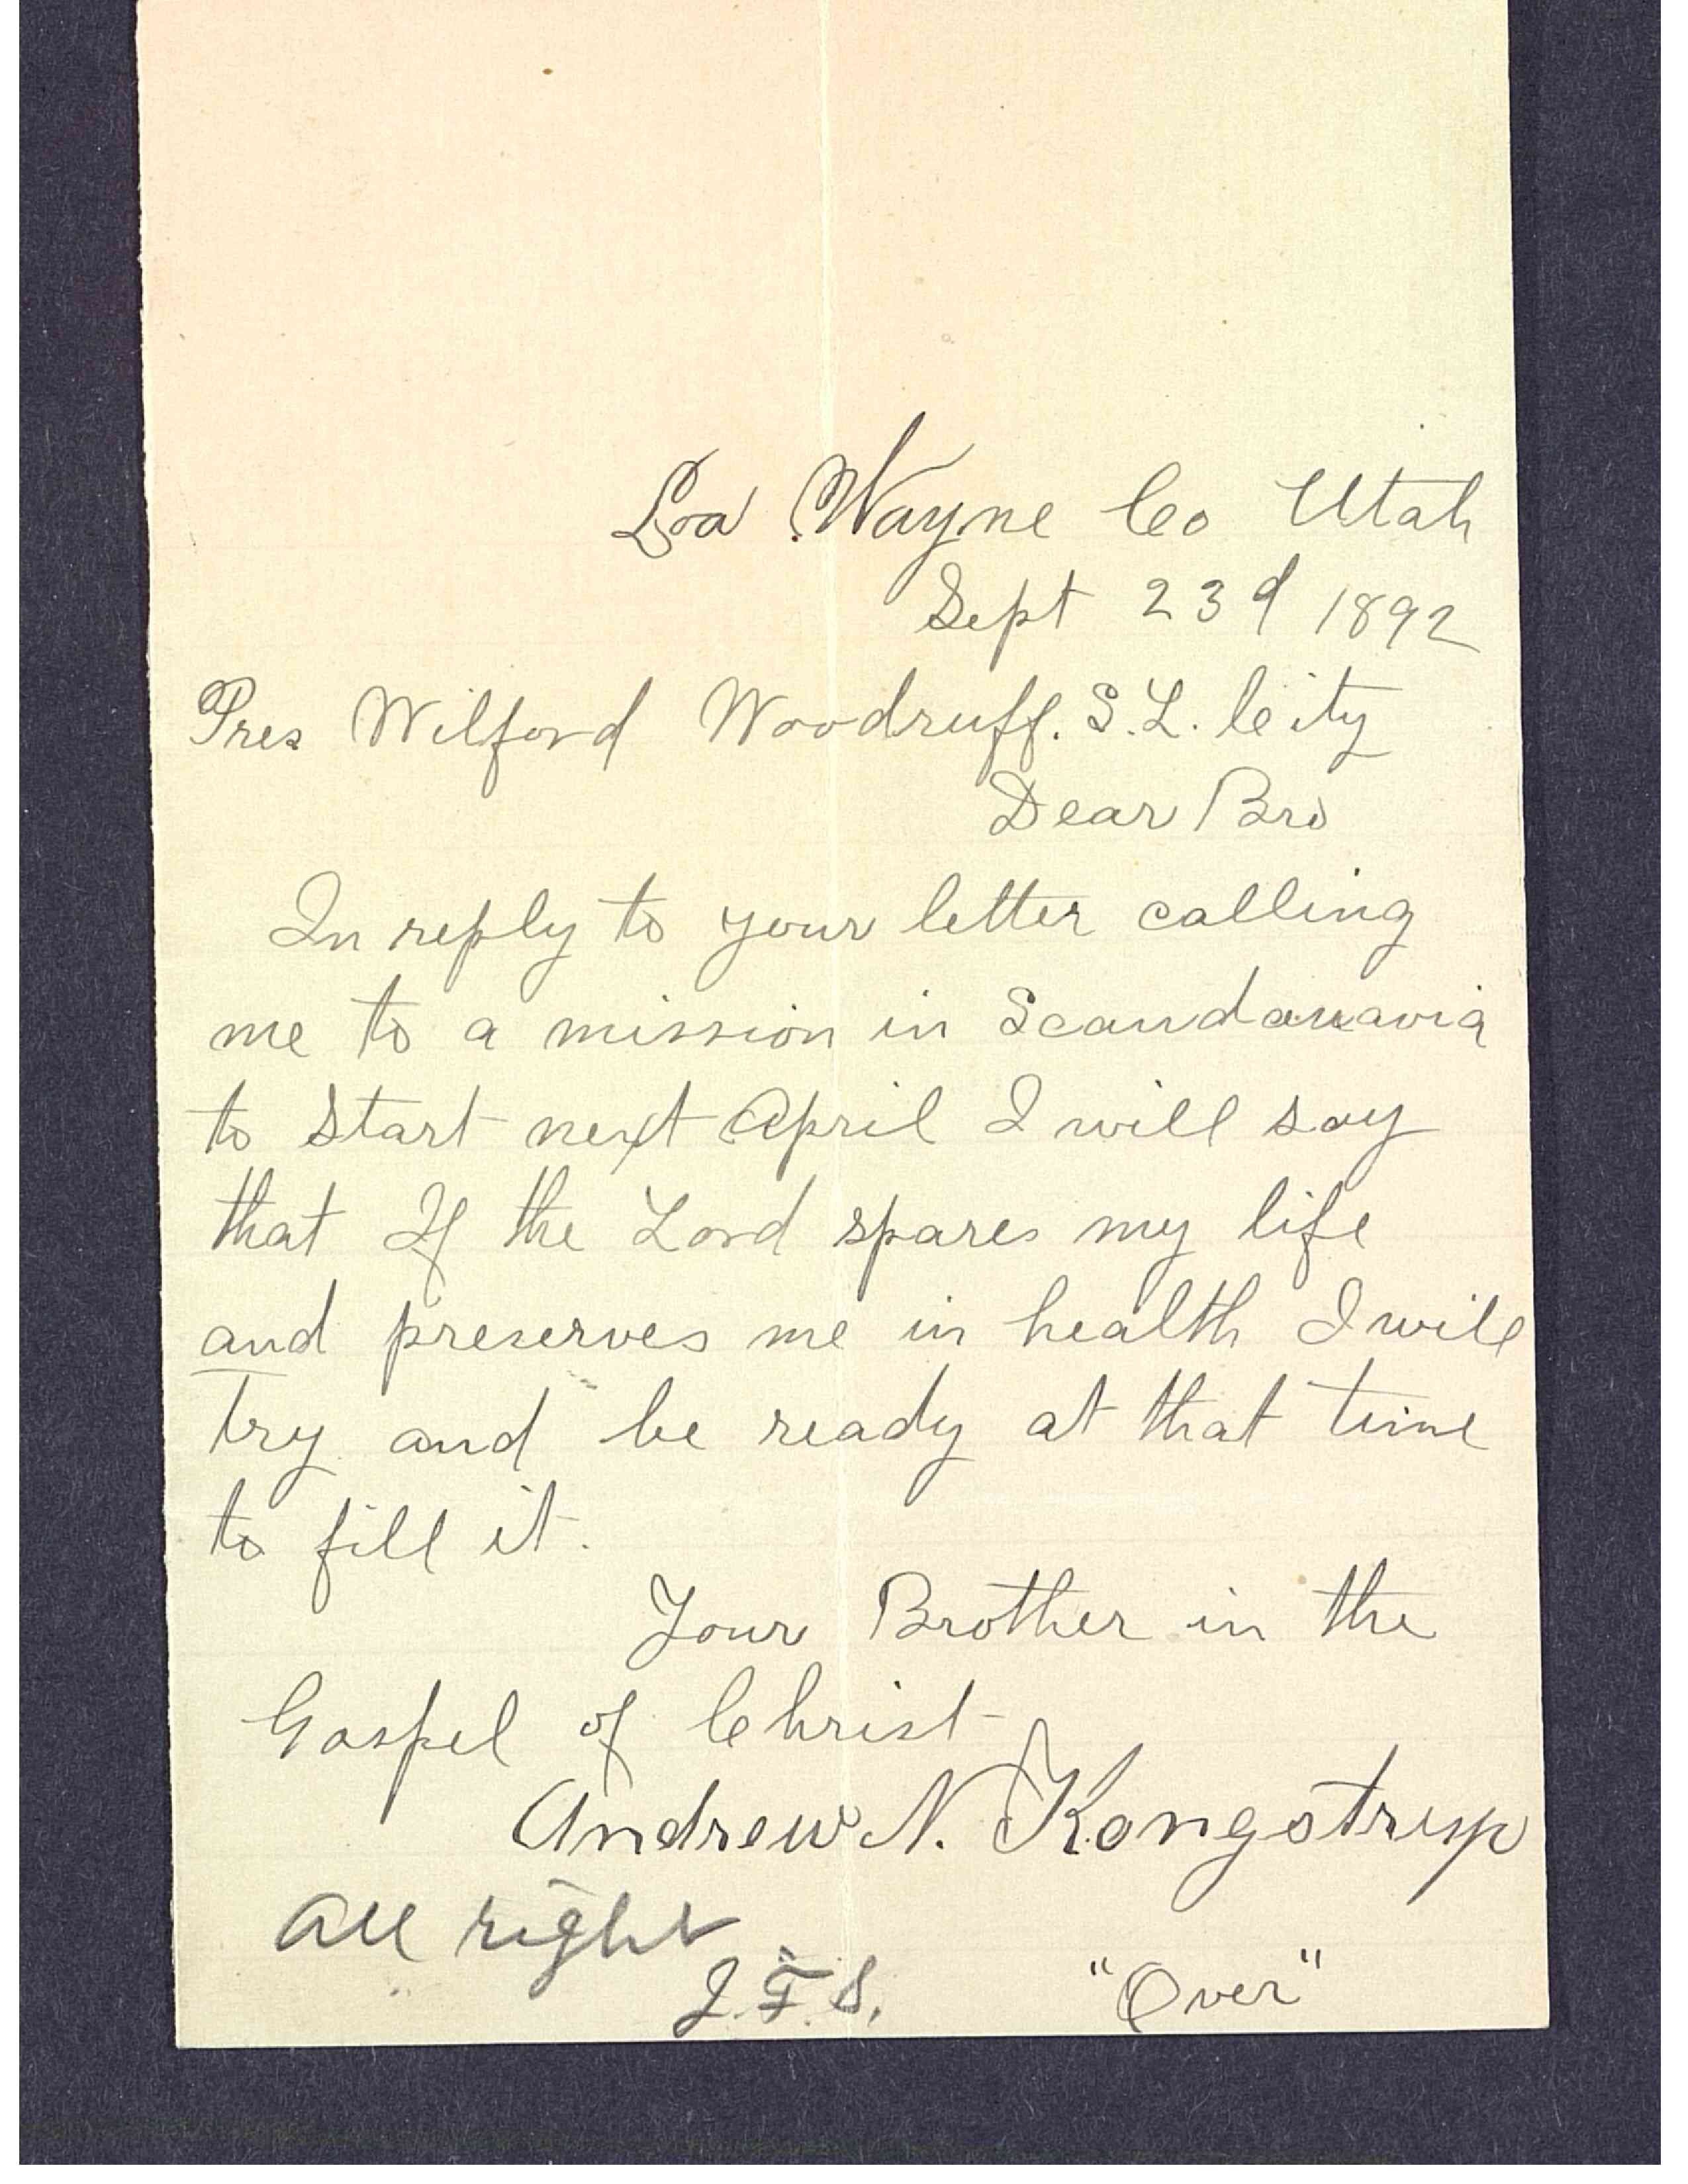 Loa Wayne Co Utah
Sept 23d 1892
Pres Wilford Woodruff. S.L. City
Dear Bro
In reply to your letter calling
me to a mission in Scandanavia
to start next April I will say
that If the Lord spares my life
and preserves me in health I will
try and be ready at that time
to fill it.
Your Brother in the
Gospel of Christ
Andrew N. Kongstrup
All right
J. F. S.
"Over"